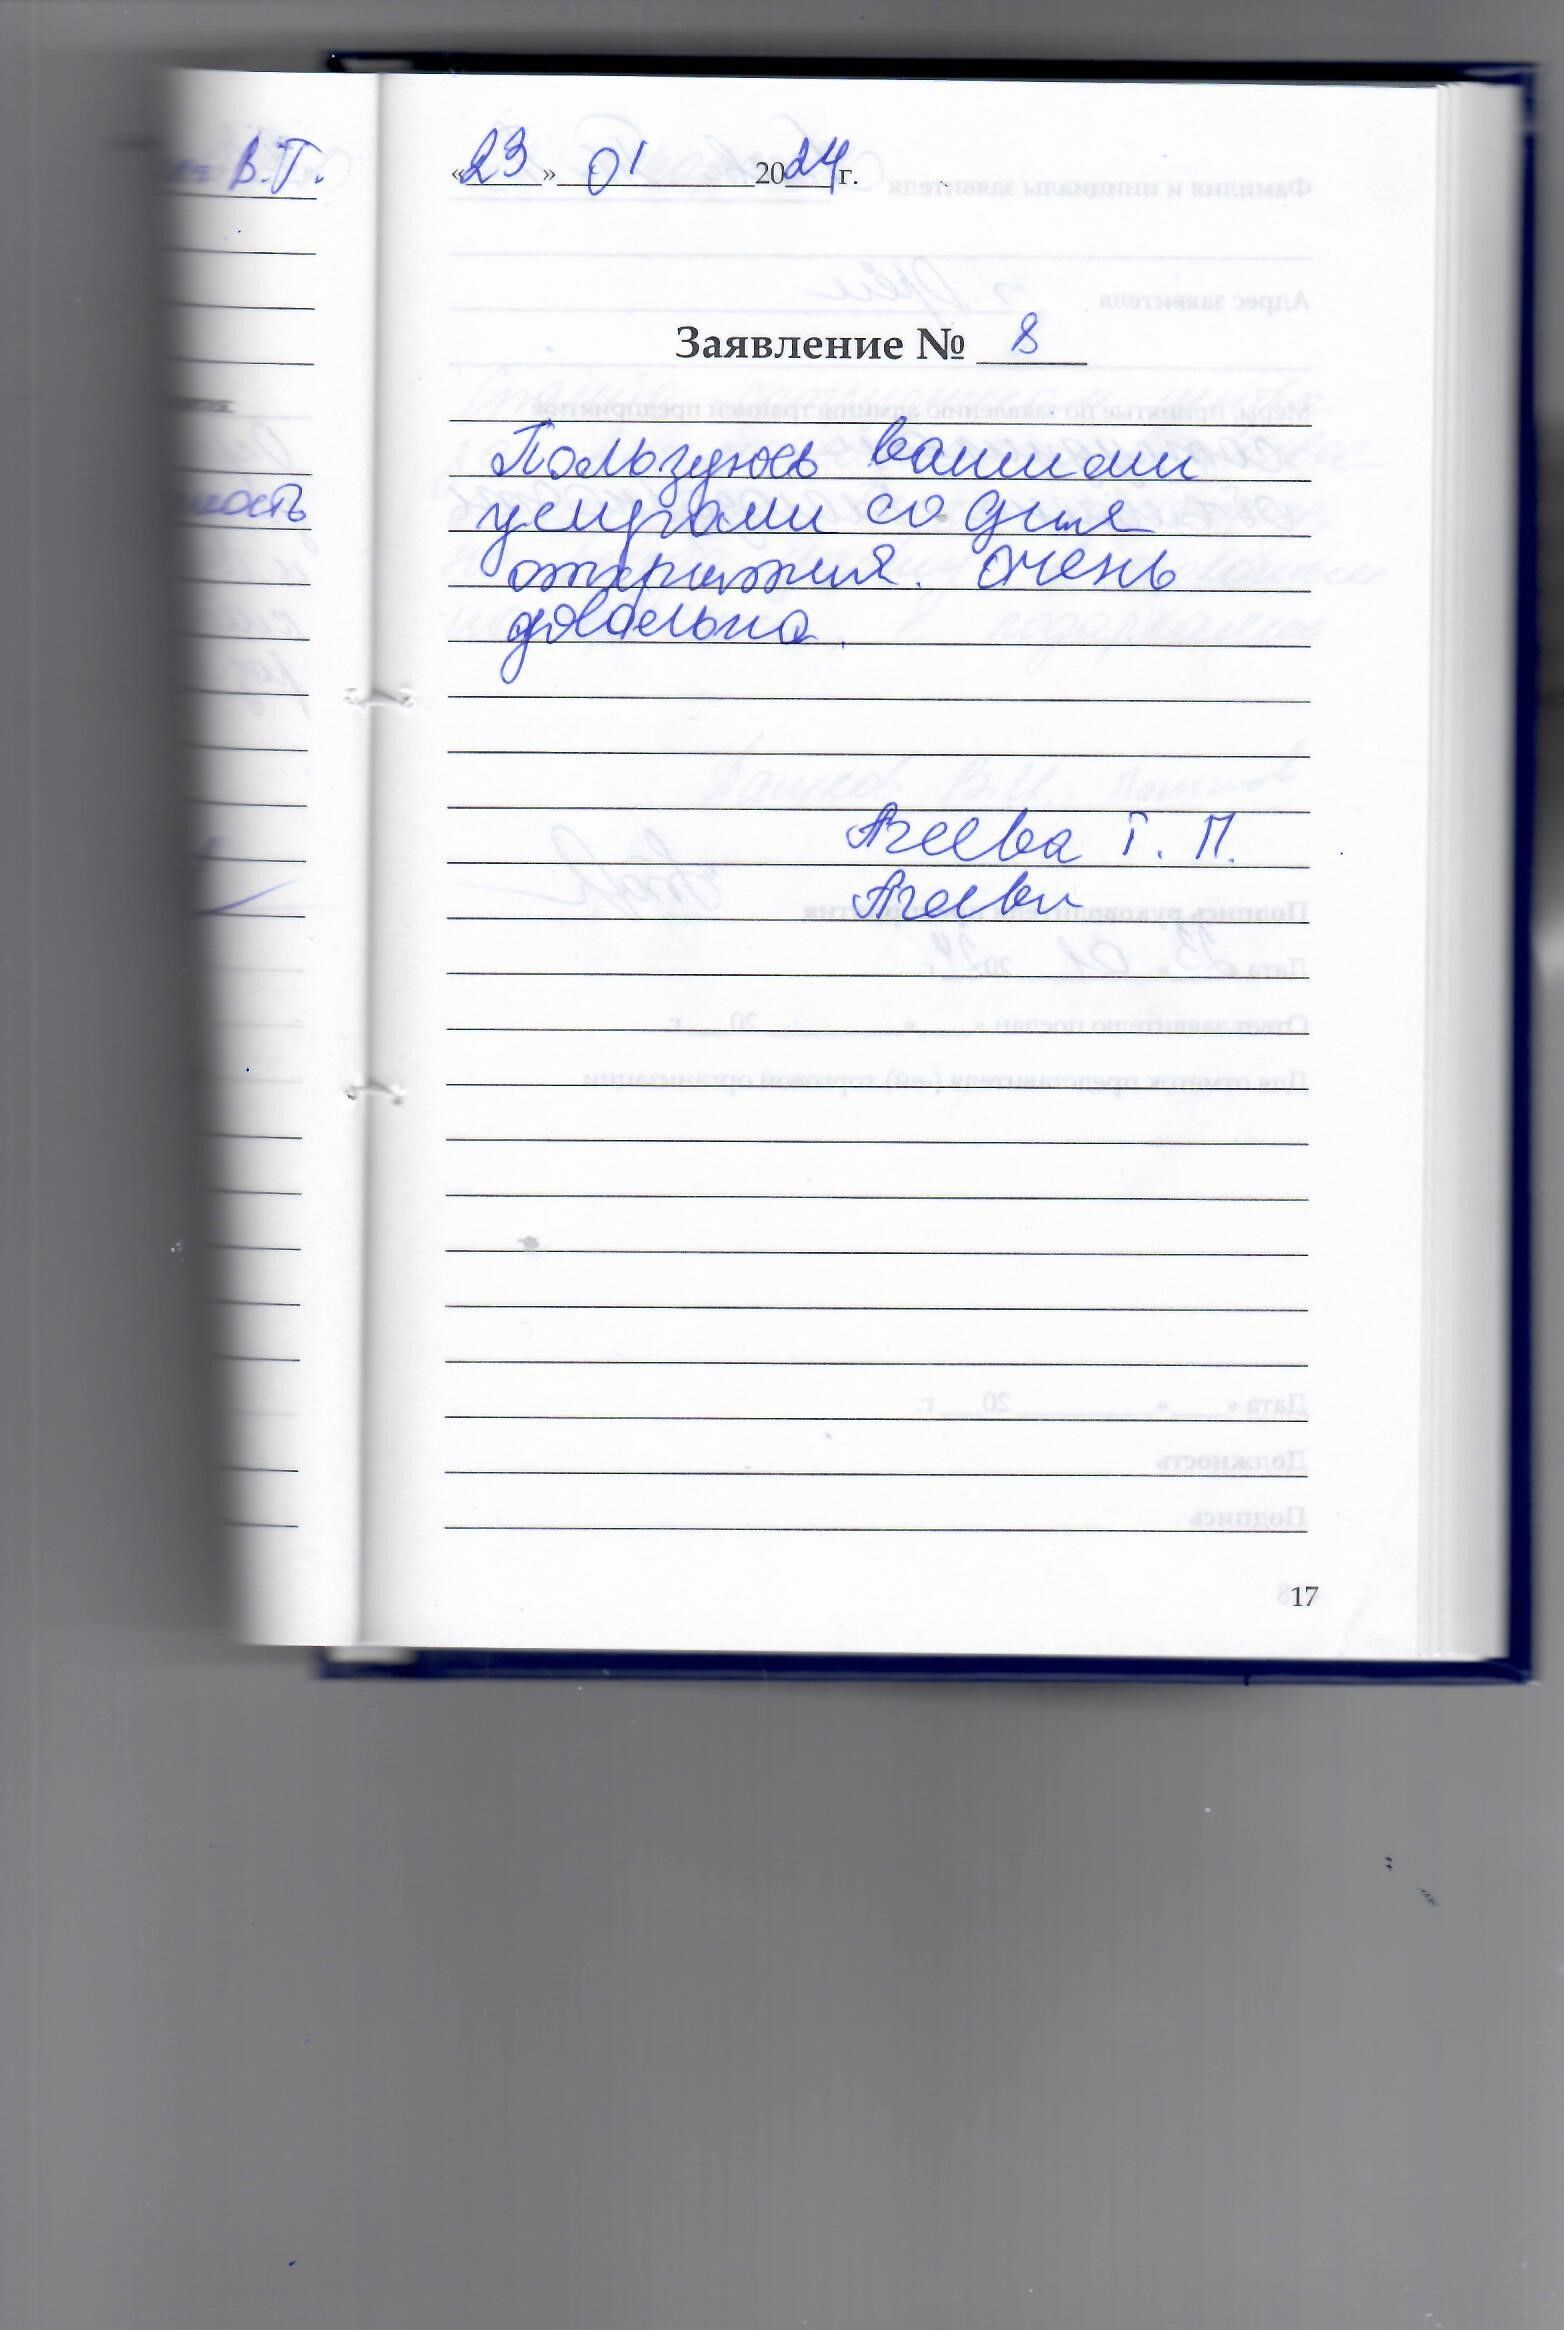 В.Г.
ность
«23» 01 2024 г.
Заявление № 8
Пользуюсь вашими
услугами со дня
открытия. очень
довольна.
Агеева Г. П.
Агеева
17